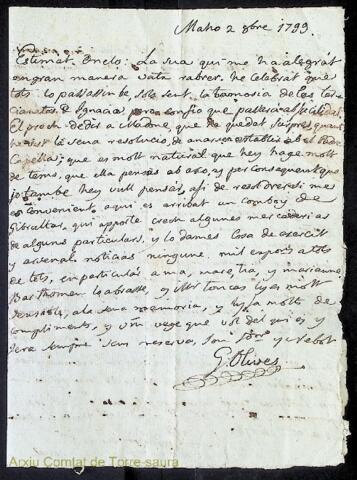 Maho 2 xbre 1799
Estimat Onclo. La sua qui me ha alegrat
en gran manera vatx rabrer. he celebrat que
tots lo passassin be, sols sent la
e Ignacia, pero confio que passera
El proch dedis a Madone, que ha quedat surpres quant
ha vist la seua resolució, de anarse establir
Capella; que es molt natural que hey hage molt
de tems, que ella pensás ab axo, y per consequent que
jo tambe hey vull pensar, afi de resoldrer si me
es convenient. aqui es arribat un comboy de
Gibraltar, qui apporte crech algunes mercaderias
de alguns particulars, y lo demes cosa de exercit
y arsenal. noticias ningune. mil expres. a tots
de tots, en particular a ma mare, tia, y marianne
Barthomeu la brasse, y Mi toncas hy es molt
sensible, a la seua memoria, y hy fa molts de
compliments, y vm. vege que vol del qui es y
sera sempre sens reserva, son
G. Olives
Arxiu Comtat de Torre-saura